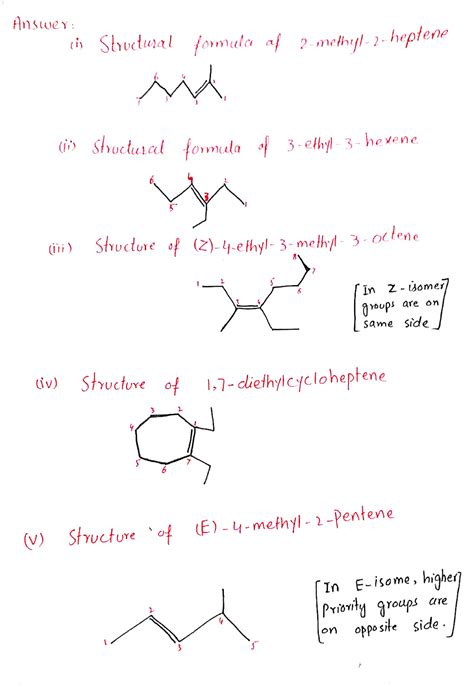 Answer:
(i) Structural formula of 2-methyl-2-heptene
7 6 5 4 3 2 1
(ii) Structural formula of 3-ethyl-3-hexene
6 5 4 3 2 1
(iii) Structure of (Z)-4-ethyl-3-methyl-3-octene
1 2 3 4 5 6 7 8
[In Z-isomer
groups are on
same side]
(iv) Structure of 1,7-diethylcycloheptene
1 2 3 4 5 6 7
(v) Structure of (E)-4-methyl-2-Pentene
[In E-isome, higher
Priority groups are
on opposite side.]
1 2 3 4 5